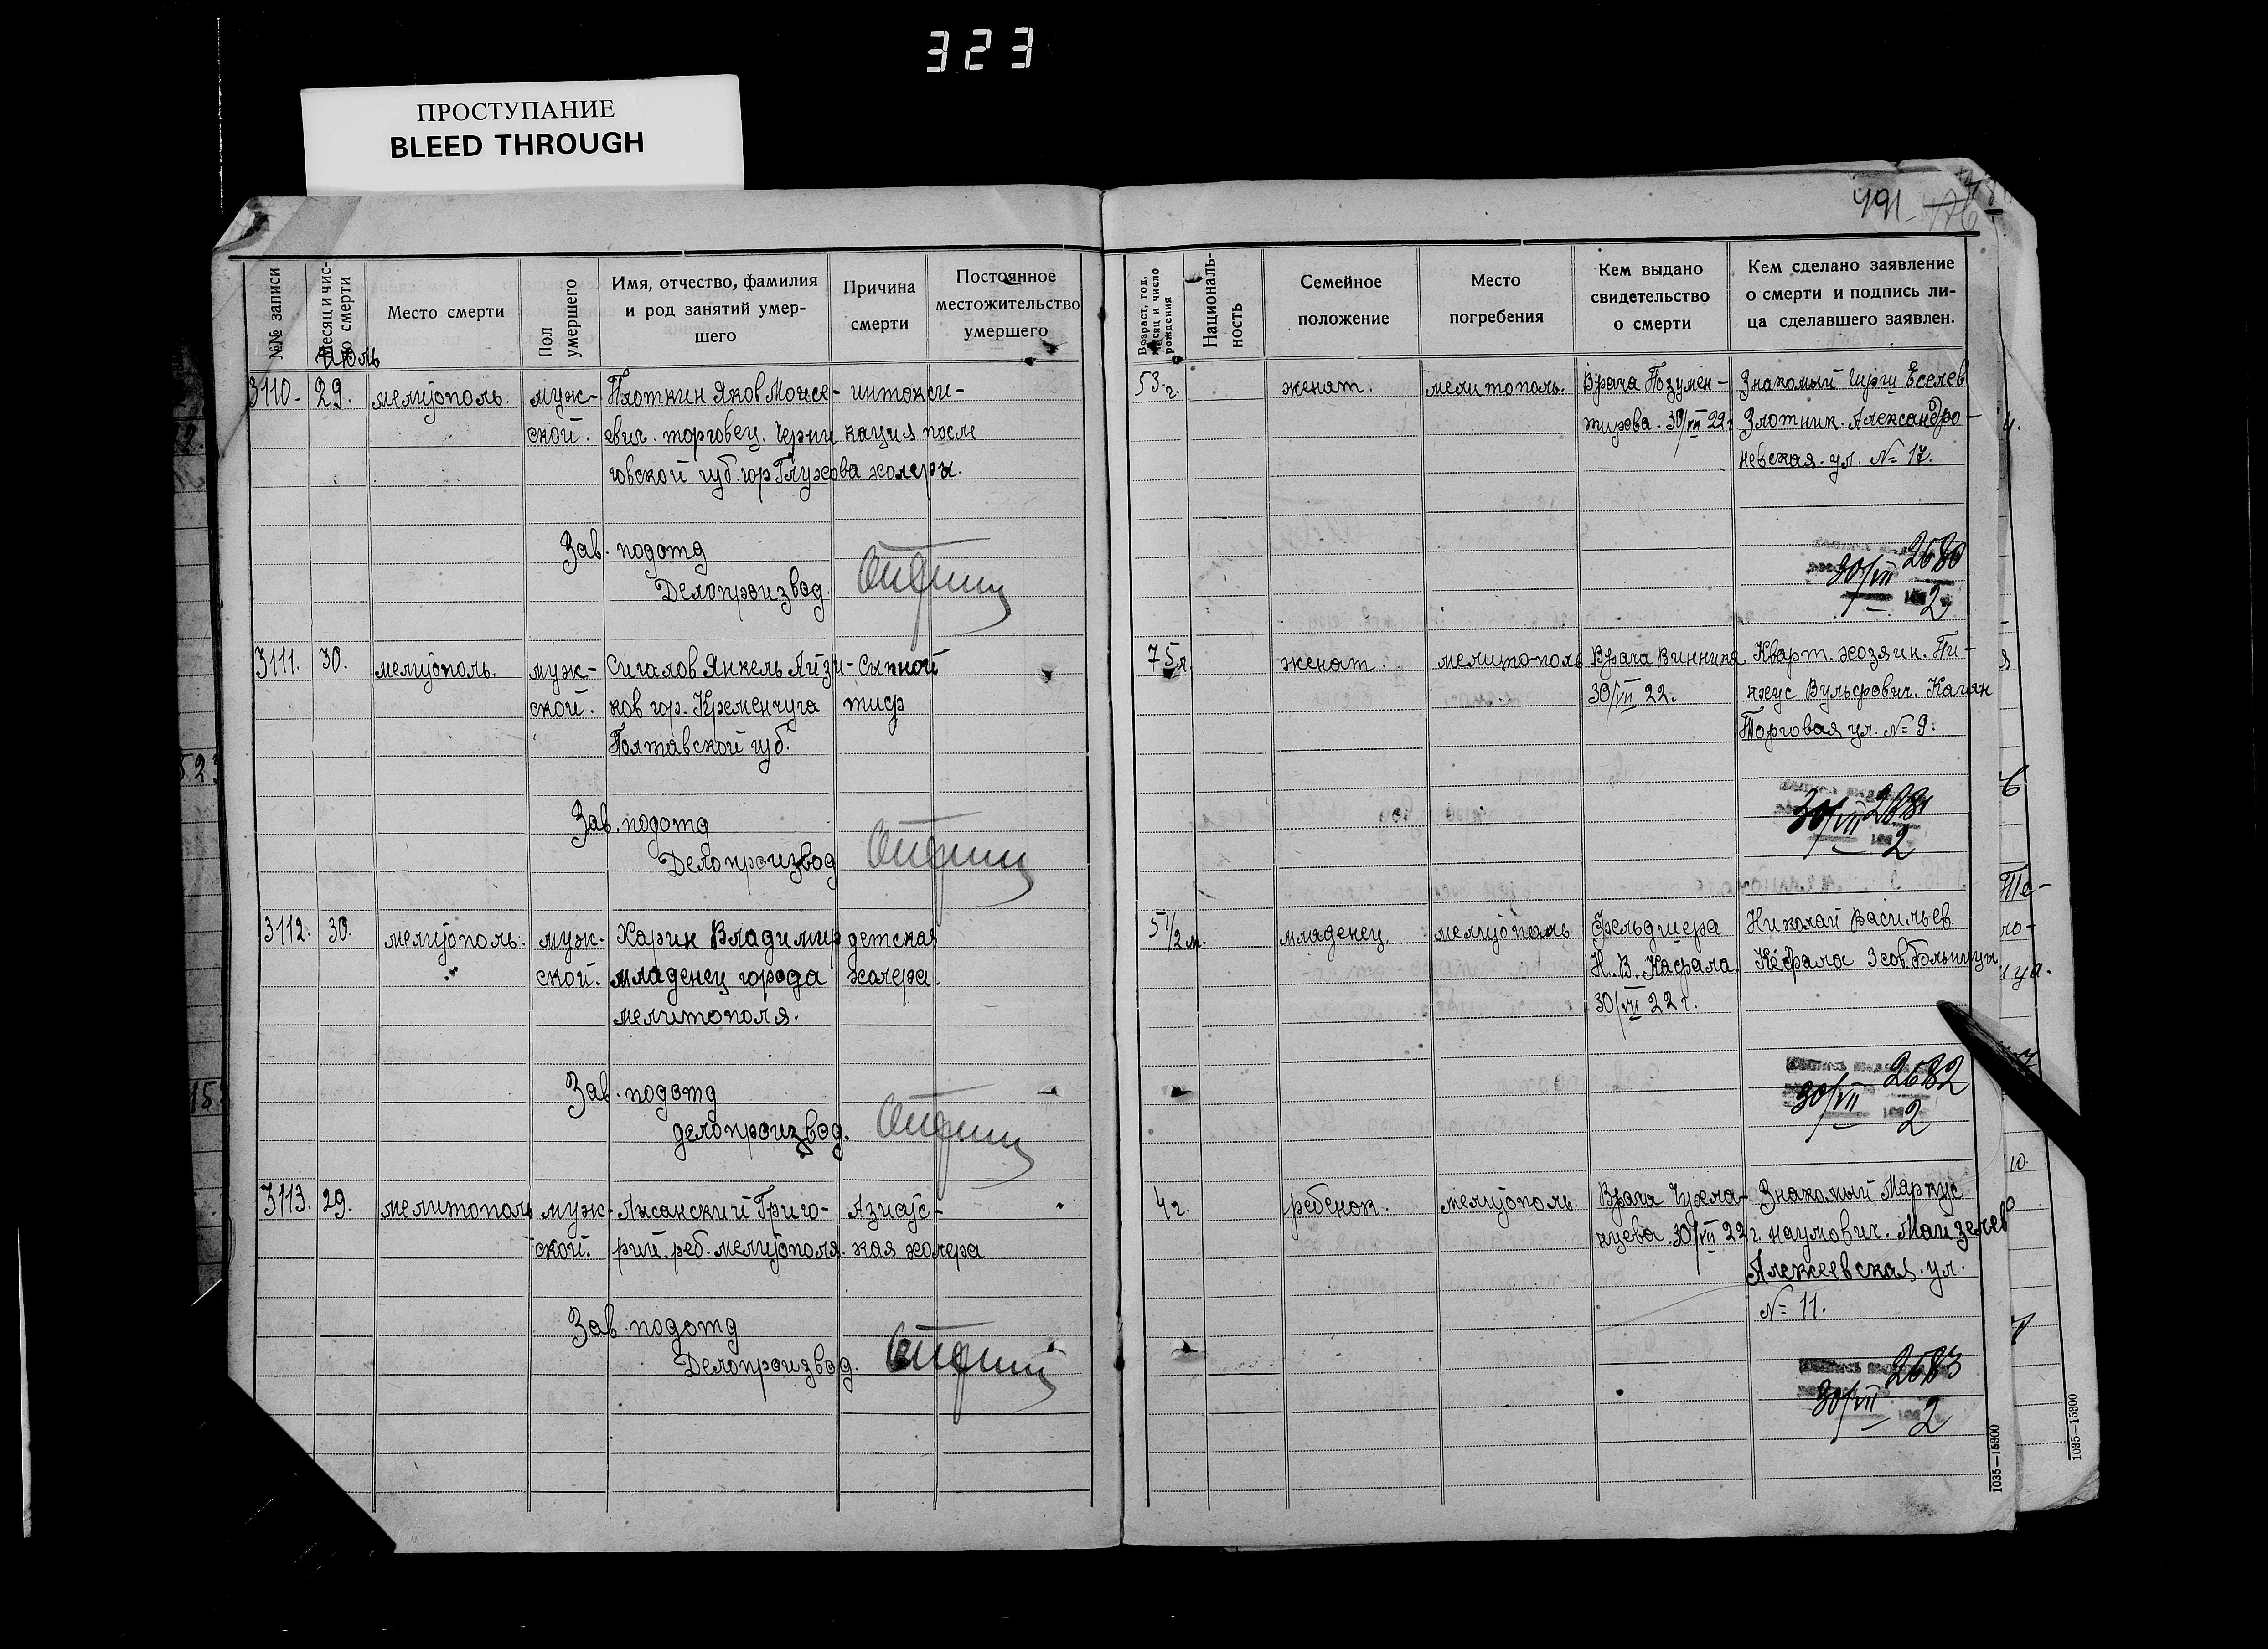 323
ПРОСТУПАНИЕ
BLEED THROUGH
491
№№ записи
Месяц и чис-
ло смерти
Июль
Место смерти
Пол
умершего
Имя, отчество, фамилия
и род занятий умер-
шего
Причина
смерти
Постоянное
местожительство
умершего
Возраст, год,
месяц и число
рождения
Националь-
ность
Семейное
положение
Место
погребения
Кем выдано
свидетельство
о смерти
Кем сделано заявление
о смерти и подпись ли-
ца сделавшего заявлен.
3110. 29. мелитополь. муж- Плоткин Яков Моисе- интокси- 53 г. женат. мелитополь. Врача Позумен- Знакомый Гирш Еселев
ской. евич. торговец. Черни кация после тирова. 30/VII 22 г. Злотник. Александро-
говской губ. гор Глухова холеры. невская. ул. № 17.
Зав. подотд
Делопроизвод.
2680
30/VII
2
3111. 30. мелитополь. муж- Сигалов Янкель Айзи- Сыпной 75 л. женат. мелитополь Врача Винника Кварт. хозяин. Пи-
ской. ков гор. Кременчуга тиф 30/VII 22. нхус Вульфович. Каган
Полтавской губ. Торговая ул. № 9.
Зав. подотд
Делопроизвод
2681
30/VII
2
3112. 30. мелитополь. муж- Харин Владимир детская 5 1/2 м. младенец. мелитополь Фельдшера Николай Васильев.
ской. младенец города холера. Н. В. Кафала. Кефала Зсов. больницы
мелитополя. 30/VII 22 г.
Зав. подотд
делопроизвод.
2682
30/VII
2
3113. 29. мелитополь муж- Лисанский Григо- Азиатс- 4 г. ребенок. мелитополь. Врача Чухла- Знакомый Маркус
ской. рий. реб. мелитополя. кая холера нцева. 30/VII 22 г. наумович. Майзелев
Алексеевская. ул.
№ 11.
Зав. подотд
Делопроизвод.
2683
30/VII
2
1035—15300
1035—15300